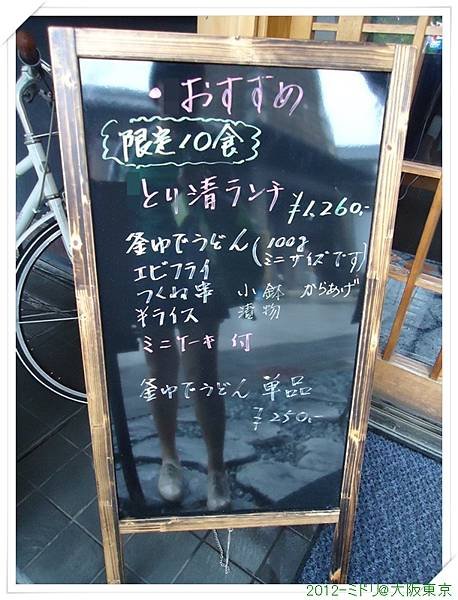 ・おすすめ
限定10食
とり清ランチ ¥1,260.-
釜ゆでうどん(100g ミニサイズです)
エビフライ
つくね串 小鉢 からあげ
半ライス 漬物
ミニケーキ付
釜ゆでうどん 単品
¥250.-
2012-ミドリ@大阪東京